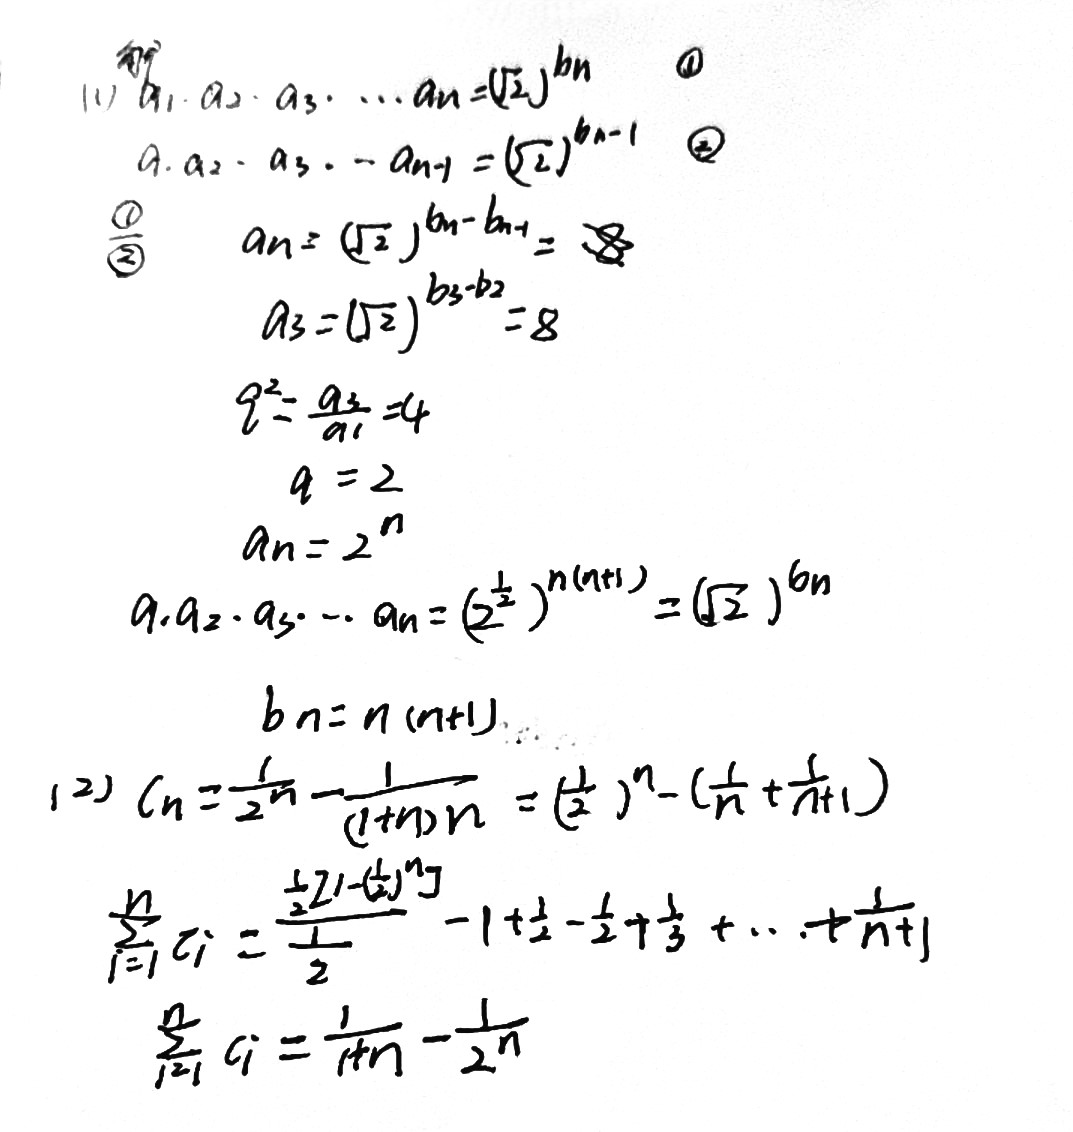 (1) a₁·a₂·a₃·…aₙ=(√2)^bₙ ①
a₁·a₂·a₃·…aₙ₋₁=(√2)^bₙ₋₁ ②
①/② aₙ=(√2)^(bₙ-bₙ₋₁)=
a₃=(√2)^(b₃-b₂)=8
q²=a₃/a₁=4
q=2
aₙ=2ⁿ
a₁·a₂·a₃·…aₙ=(2^(1/2))^(n(n+1))=(√2)^bₙ
bₙ=n(n+1)
(2) Cₙ=1/2ⁿ-1/((1+n)n)=(1/2)ⁿ-(1/n+1/(n+1))
∑_(i=1)^n cᵢ=(1/2[1-(1/2)ⁿ])/(1/2)-1+1/2-1/2+1/3+…+1/(n+1)
∑_(i=1)^n cᵢ=1/(1+n)-1/2ⁿ